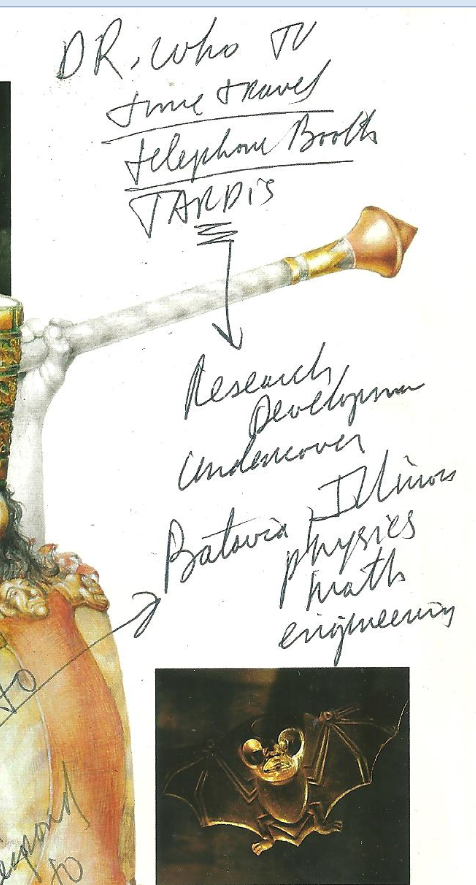 DR. Who TV
time travel
telephone Booth
TARDIS
Research
Developmen
undercover
Batavia Illinois
physics
math
engineering
to
to